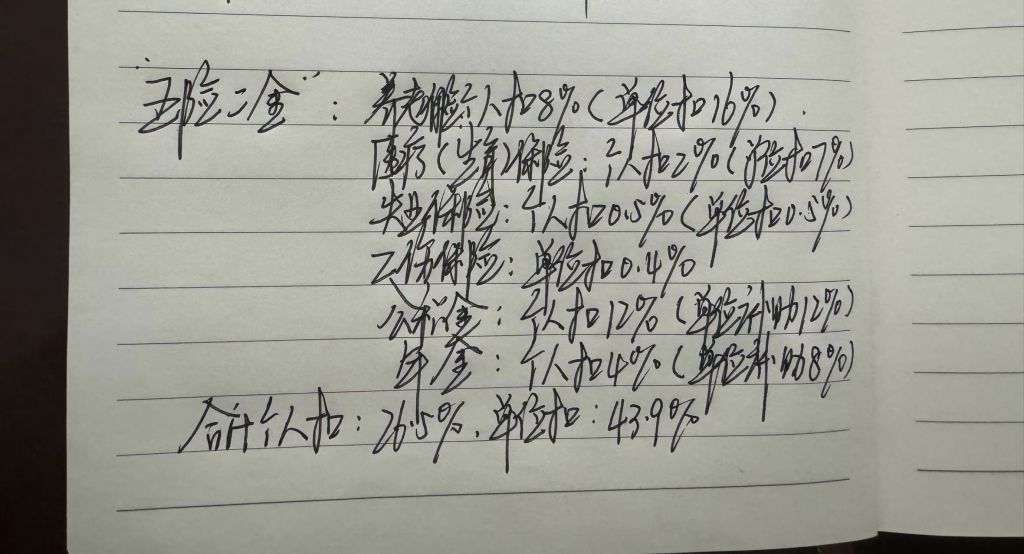 “五险二金”: 养老保险个人扣8%(单位扣16%).
医疗(生育)保险: 个人扣2%(单位扣7%)
失业保险: 个人扣0.5%(单位扣0.5%)
工伤保险: 单位扣0.4%
公积金: 个人扣12%(单位补助12%)
年金: 个人扣4%(单位补助8%)
合计个人扣: 26.5%. 单位扣: 43.9%